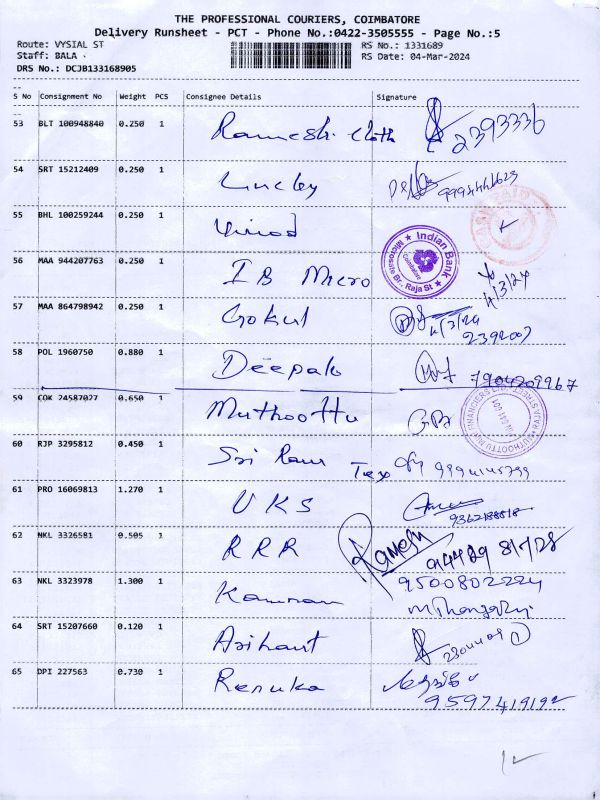 THE PROFESSIONAL COURIERS, COIMBATORE
Delivery Runsheet - PCT - Phone No.:0422-3505555 - Page No.:5
Route: VYSIAL ST RS No.: 1331689
Staff: BALA . RS Date: 04-Mar-2024
DRS No.: DCJB133168905
S No Consignment No Weight PCS Consignee Details Signature
53 BLT 100948840 0.250 1 Ramesh cloth 2393336
54 SRT 15212409 0.250 1 Luckey
55 BHL 100259244 0.250 1 Vinod
56 MAA 944207763 0.250 1 IB Micro 4/3/24
Indian Bank
Microsate Br., Raja St
Coimbatore
57 MAA 864798942 0.250 1 Gokul 4/3/24
2392007
58 POL 1960750 0.880 1 Deepak 7904209967
59 COK 24587027 0.650 1 Muthoottu
60 RJP 3295812 0.450 1 Sri Ram Tex
61 PRO 16069813 1.270 1 UKS
9362188818
62 NKL 3326581 0.505 1 RRR Ramesh
63 NKL 3323978 1.300 1 Kamran 9500802224
64 SRT 15207660 0.120 1 Arihant
65 DPI 227563 0.730 1 Renuka
9597419192